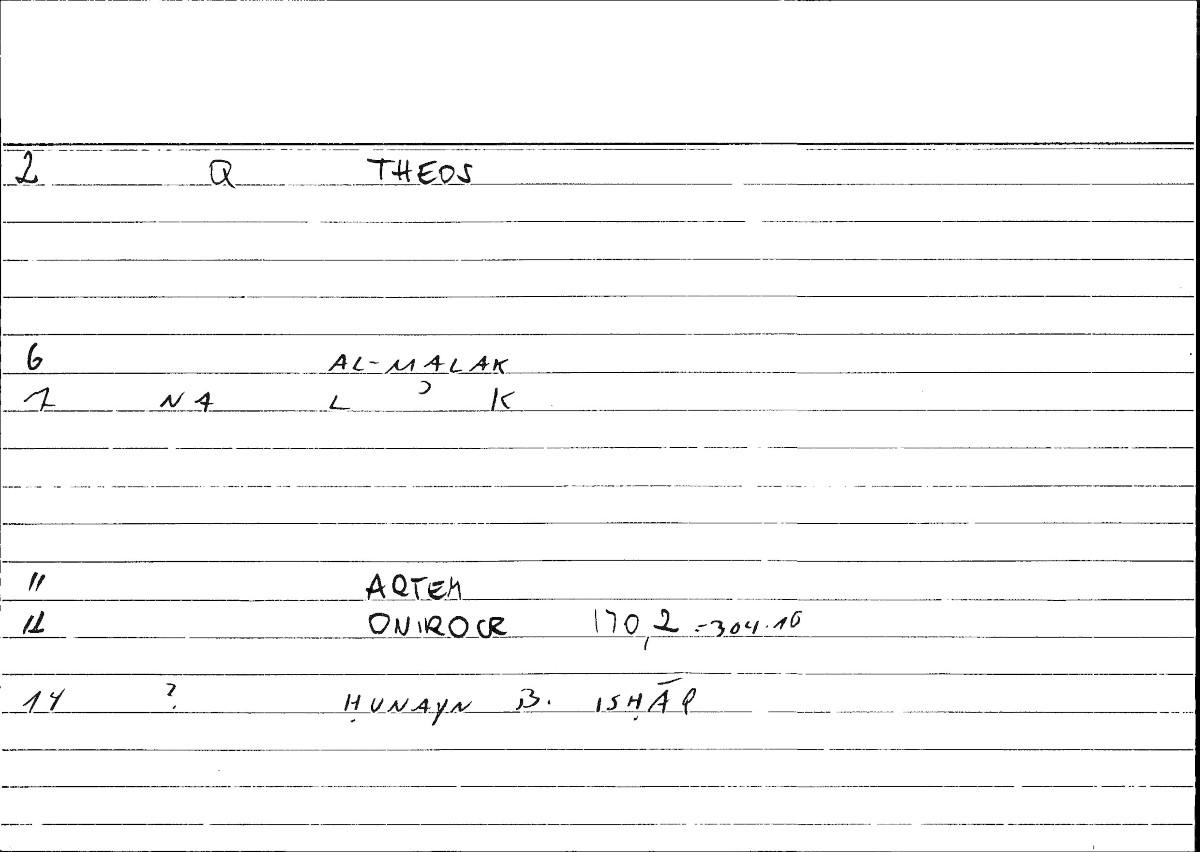 2 Q THEOS
6 AL-MALAK
7 NA L ʾ K
11 ARTEM
12 ONIROCR 170,2 =304.16
14 ? ḤUNAYN B. ISḤĀQ